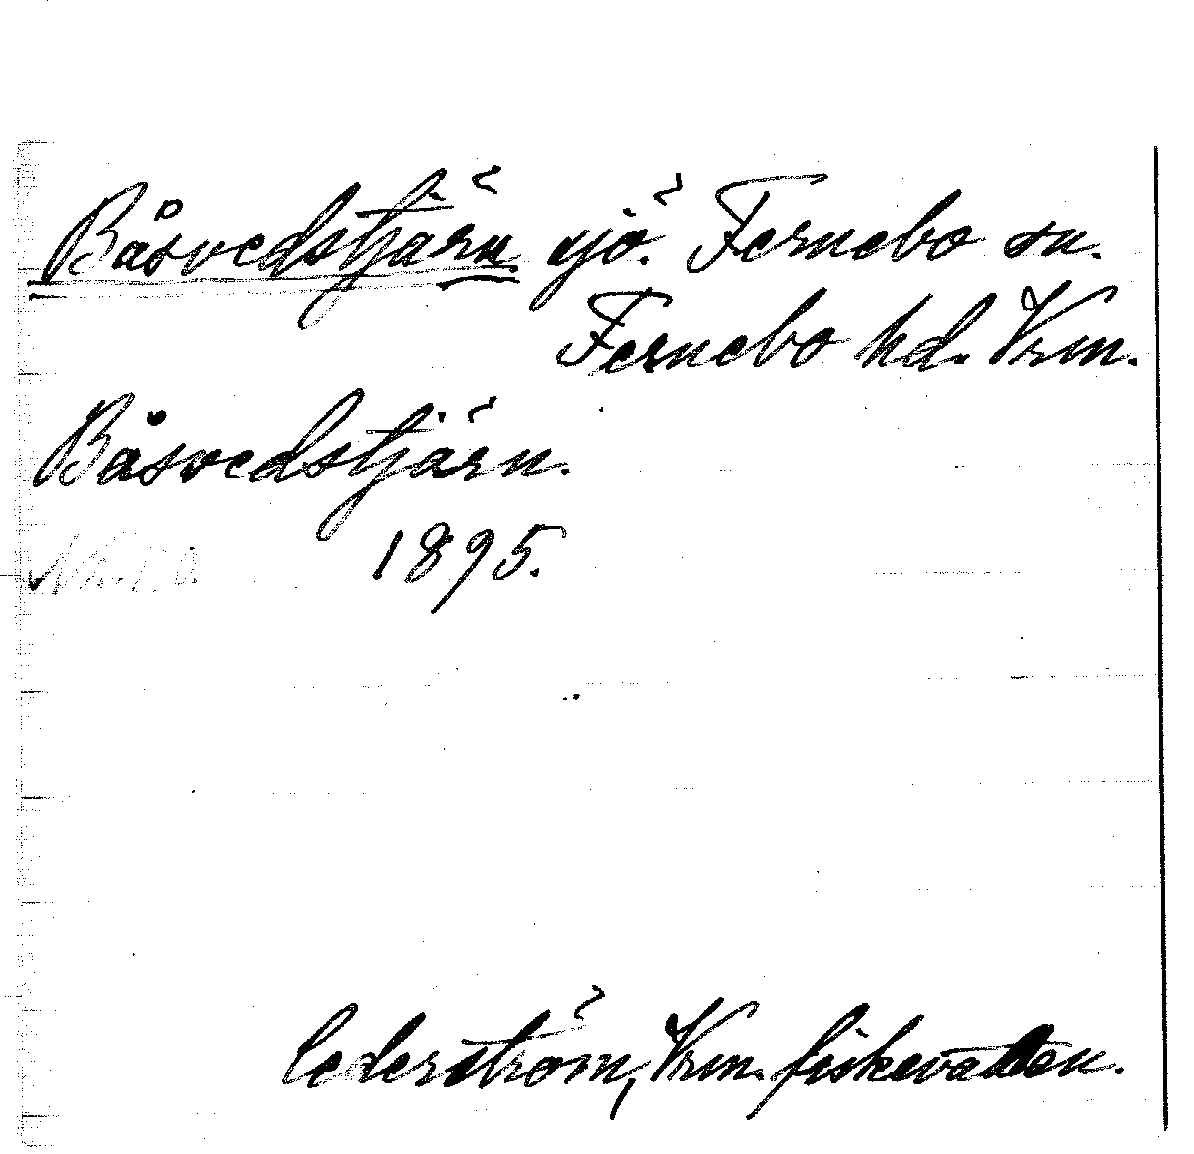 Båsvedstjärn sjö. Fernebo sn.
Fernebo hd. Vrm.
Båsvedstjärn.
1895.
Cederström, Vrm. fiskevatten.